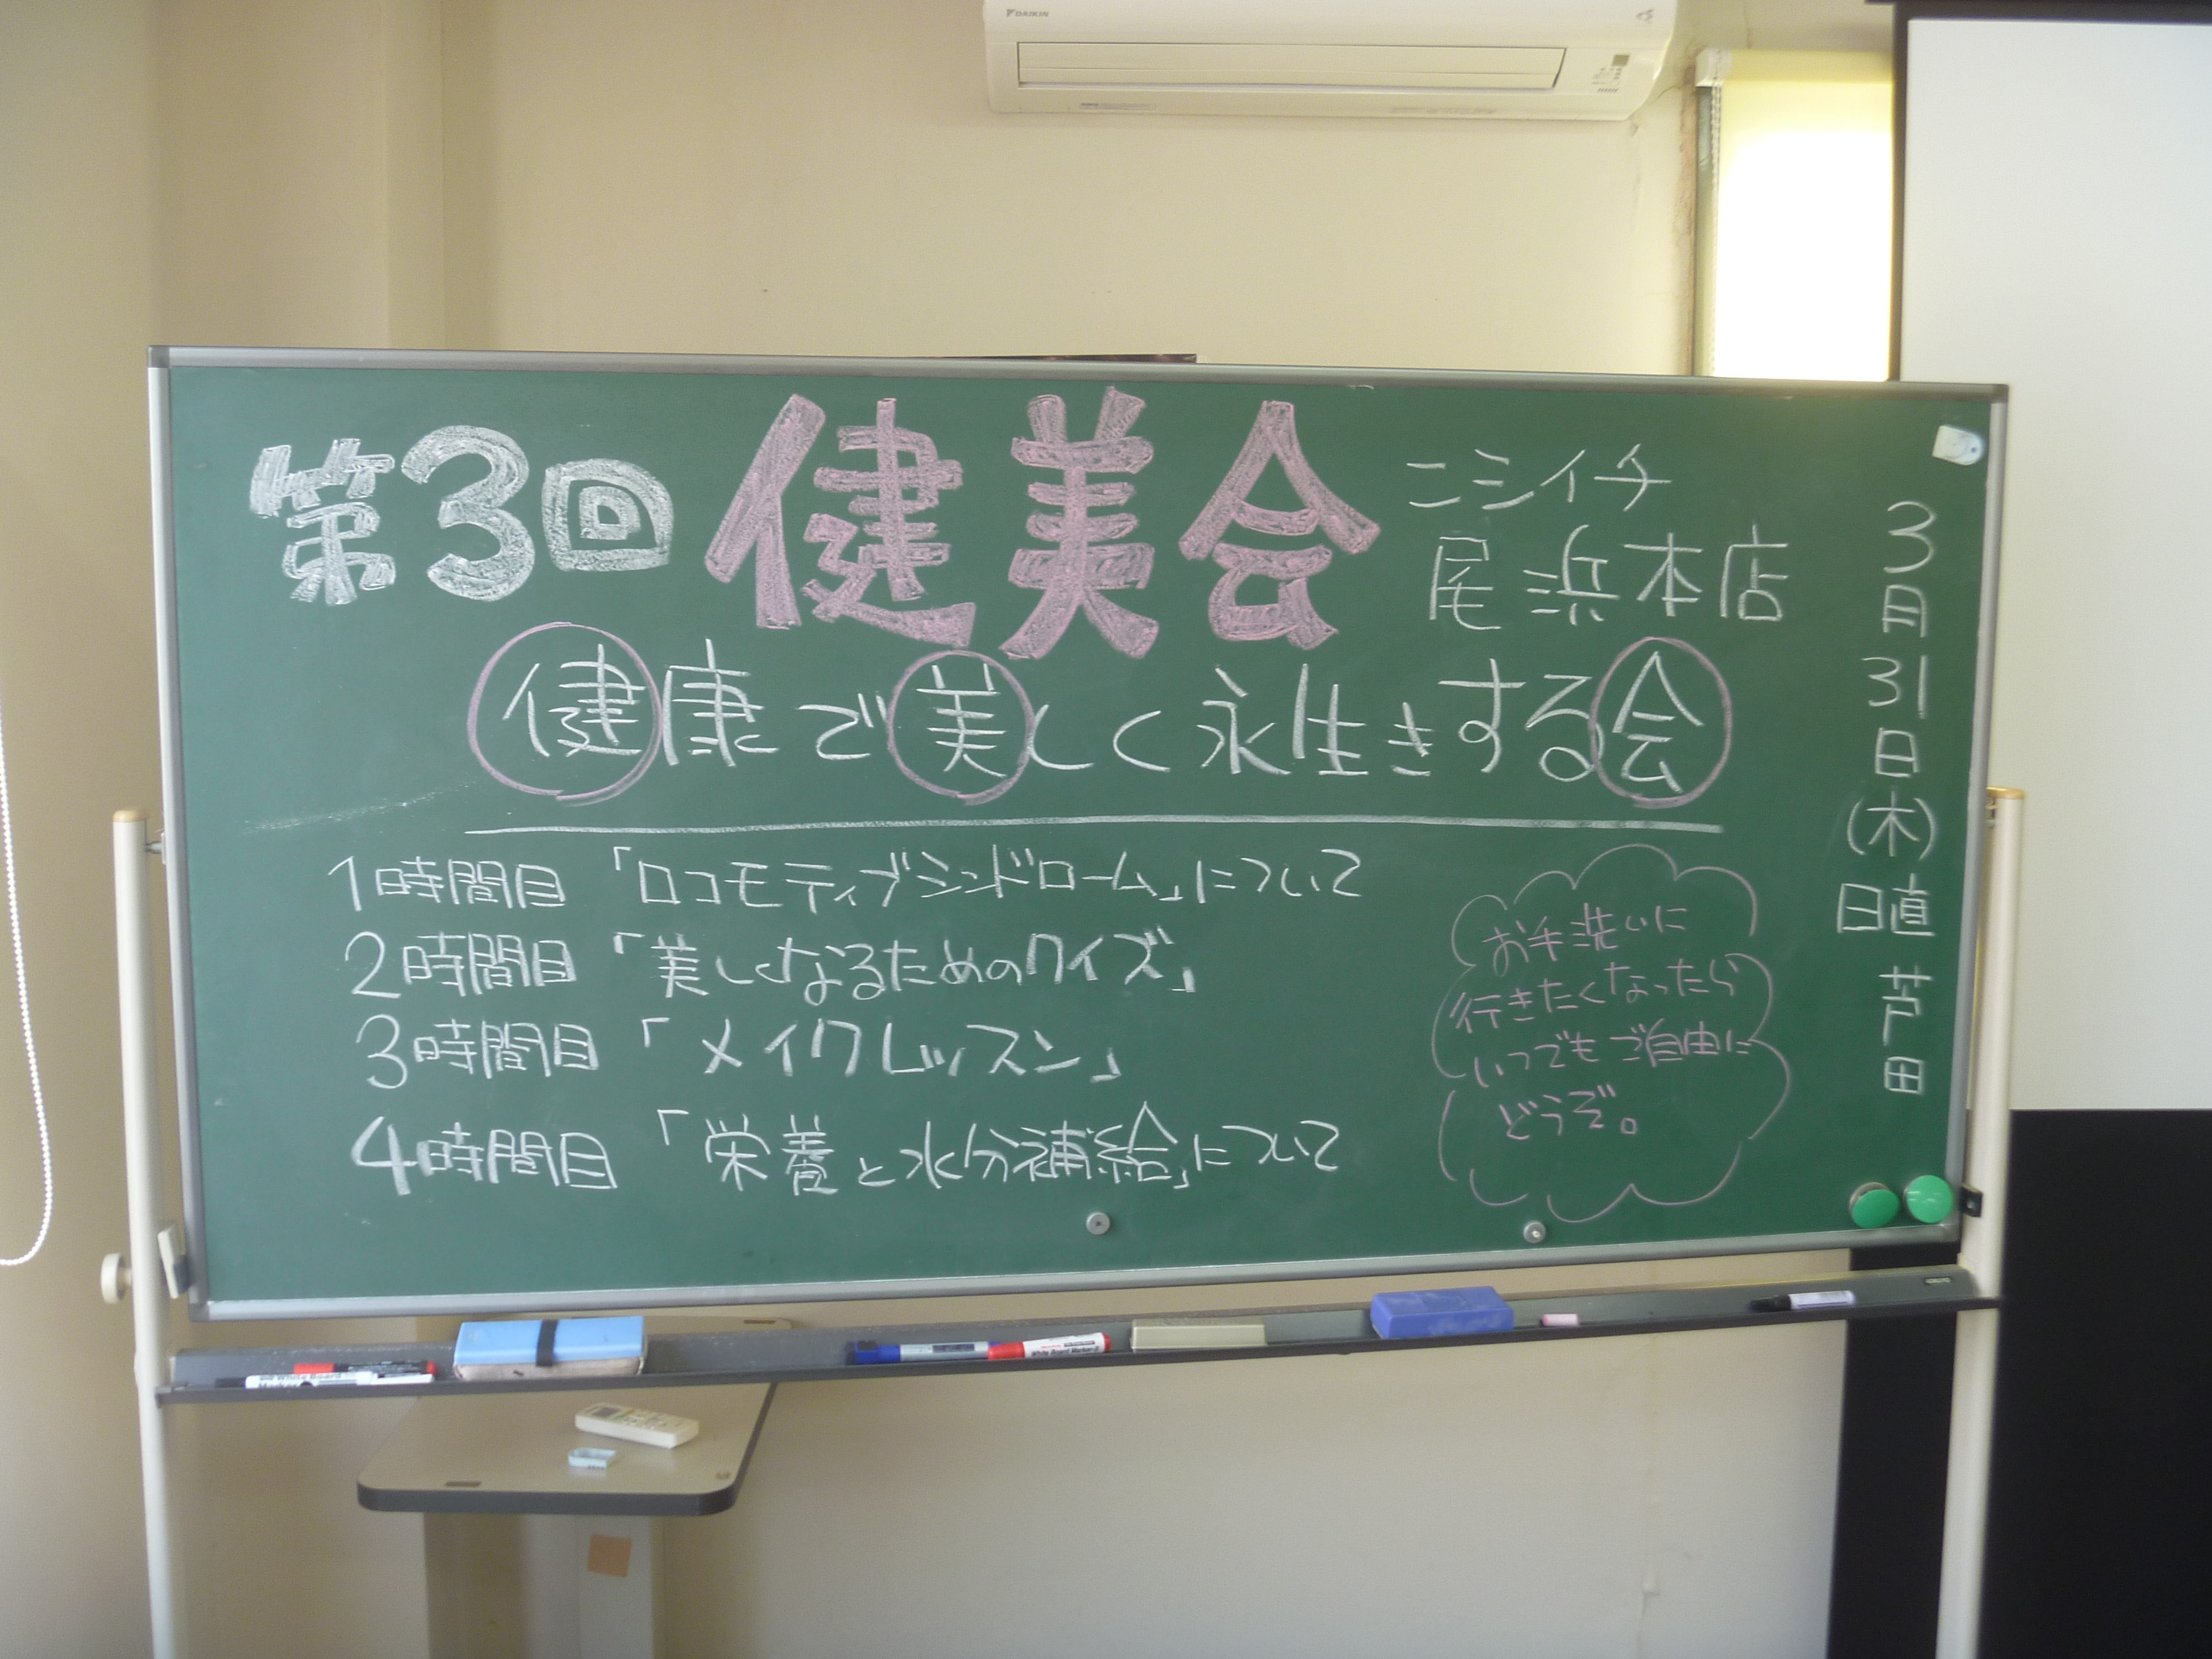 DAIKIN
第3回 健美会
ニシイチ
尾浜本店
健康で美しく永生きする会
1時間目 「ロコモティブシンドローム」について
2時間目 「美しくなるためのクイズ」
3時間目 「メイクレッスン」
4時間目 「栄養と水分補給」について
お手洗いに
行きたくなったら
いつでもご自由に
どうぞ。
3月31日(木)日直 芦田
White Board
White Board Marker